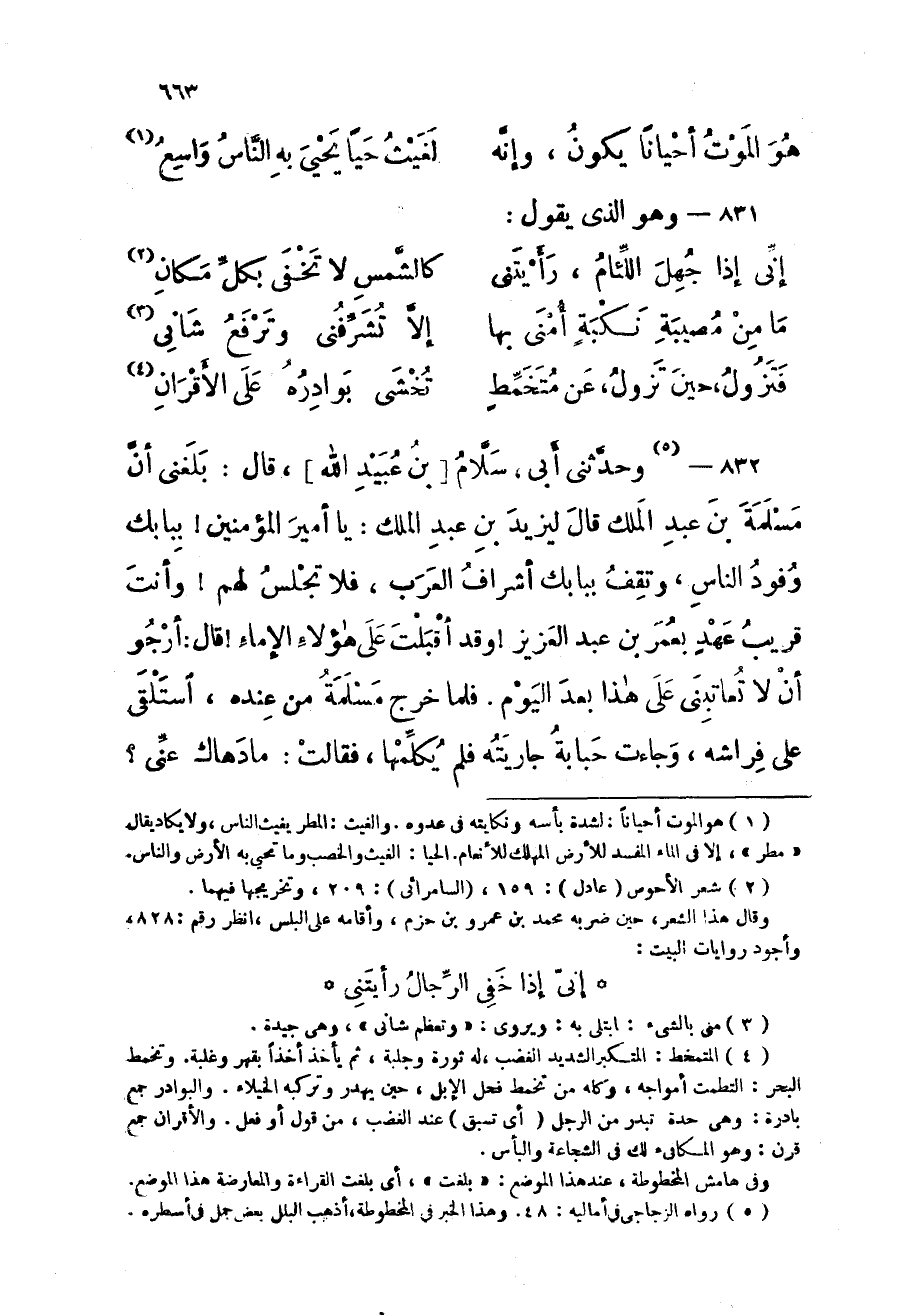 ٦٦٣
هُوَ المَوْتُ أحْيانًا يكونُ ، وإنَّه لَغَيْثُ حَيًا يَحْيىَ بهِ النَّاسُ وَاسِعُ (١)
٨٣١ — وهو الذى يقول :
إنِّى إذا جُهِلَ اللِّئامُ ، رَأَيْتَنى كالشَّمسِ لا تَخْفَى بكلِّ مَكانِ (٢)
مَا مِنْ مُصِيبَةِ نَكْبَةٍ أُمْنَى بها إلاَّ تُشَرِّفُنى وتَرْفَعُ شَانِى (٣)
فَتَزُولُ، حينَ تَزولُ، عَن مُتَخَمِّطٍ تُخْشَى بَوادِرُهُ عَلَى الأَقْرَانِ (٤)
٨٣٢ — (٥) وحدَّثنى أَبى ، سَلَّامُ [ بنُ عُبَيْدِ الله ] ، قال : بَلَغنى أنَّ
مَسْلَمَةَ بنَ عبدِ المَلك قالَ ليزيدَ بنِ عبدِ الملك : يا أميرَ المؤمنين ! ببابك
وُفودُ الناسِ ، وتقِفُ ببابك أشرافُ العَرَب ، فلا تجْلسُ لهم ! وأنتَ
قريبُ عَهْدٍ بعُمَرَ بن عبد العَزيز ! وقد أقْبَلْتَ عَلَى هٰؤلاءِ الإماء ! قال: أرْجُو
أنْ لا تُعاتبنى عَلَى هٰذا بعدَ اليَوْم . فلما خرج مَسْلَمَةُ من عِنده ، اسْتَلْقَى
على فِراشه ، وَجاءت حَبابةُ جاريَتُه فلم يُكلِّمْها ، فقالتْ : مادَهاك عنِّى ؟
( ١ ) هو الموت أحياناً : لشدة بأسه ونكايته فى عدوه . والغيث : المطر يغيث الناس ، ولا يكاد يقال
« مطر » ، إلا فى الماء المفسد للأرض المهلك للأنعام. الحيا : الغيث والخصب وما تحيى به الأرض والناس.
( ٢ ) شعر الأحوص ( عادل ) : ١٥٩ ، ( السامرائى ) : ٢٠٩ ، وتخريجها فيهما .
وقال هذا الشعر، حين ضربه محمد بن عمرو بن حزم ، وأقامه على البلس ، انظر رقم : ٨٢٨،
وأجود روايات البيت :
* إنىّ إذا خَفِى الرِّجالُ رأيتَنِى *
( ٣ ) منى بالشىء : ابتلى به : ويروى : « وتعظم شانى » ، وهى جيدة .
( ٤ ) المتمخط : المتكبر الشديد الغضب ، له ثورة وجلبة ، ثم يأخذ أخذاً بقهر وغلبة. وتخمط
البحر : التطمت أمواجه ، وكله من تخمط فحل الإبل ، حين يهدر وتركبه الخيلاء . والبوادر جمع
بادرة : وهى حدة تبدر من الرجل ( أى تسبق ) عند الغضب ، من قول أو فعل . والأقران جمع
قرن : وهو المكافىء لك فى الشجاعة والبأس .
وفى هامش المخطوطة ، عند هذا الموضع : « بلغت » ، أى بلغت القراءة والمعارضة هذا الموضع.
( ٥ ) رواه الزجاجى فى أماليه : ٤٨. وهذا الخبر فى المخطوطة، أذهب البلل بعض جمل فى أسطره .